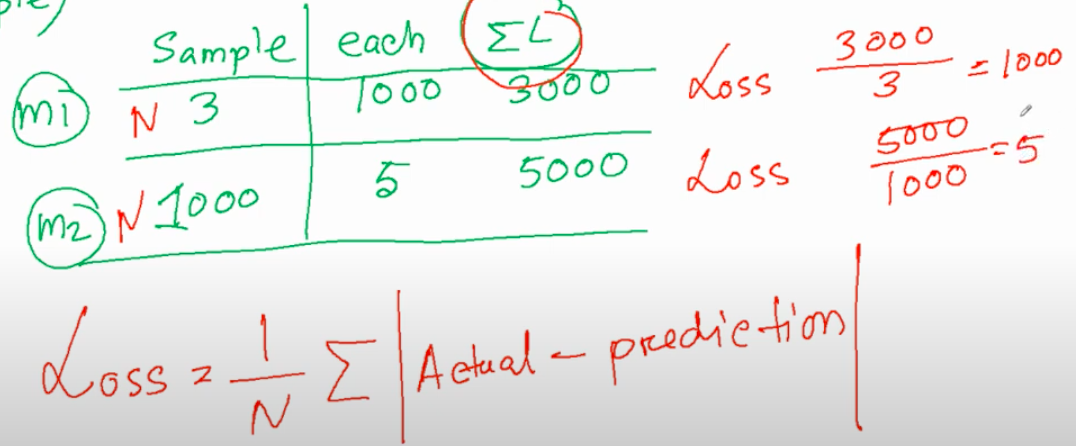 Sample each ΣL
m1 N 3 1000 3000 Loss 3000/3 = 1000
m2 N 1000 5 5000 Loss 5000/1000 = 5
Loss = 1/N Σ |Actual - prediction|